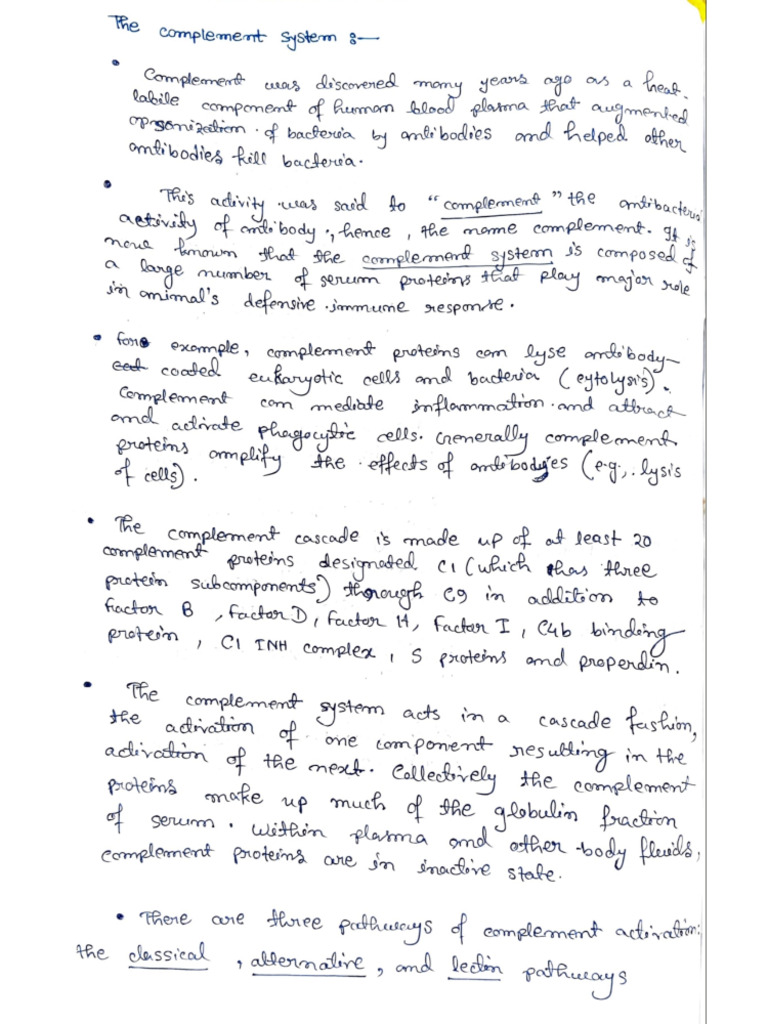 The complement system :-
• Complement was discovered many years ago as a heat-
labile component of human blood plasma that augmented
opsonization of bacteria by antibodies and helped other
antibodies kill bacteria.
• This activity was said to "complement" the antibacteria
activity of antibody, hence, the name complement. It is
now known that the complement system is composed of
a large number of serum proteins that play major role
in animal's defensive immune response.
• for example, complement proteins can lyse antibody-
coated eukaryotic cells and bacteria (cytolysis).
Complement can mediate inflammation and attract
and activate phagocytic cells. Generally complement
proteins amplify the effects of antibodyies (e.g., lysis
of cells).
• The complement cascade is made up of at least 20
complement proteins designated C1 (which has three
protein subcomponents) through C9 in addition to
factor B, factor D, factor H, factor I, C4b binding
protein, C1 INH complex, S proteins and properdin.
• The complement system acts in a cascade fashion,
the activation of one component resulting in the
activation of the next. Collectively the complement
proteins make up much of the globulin fraction
of serum. Within plasma and other body fluids,
complement proteins are in inactive state.
• There are three pathways of complement activation:
the classical, alternative, and lectin pathways